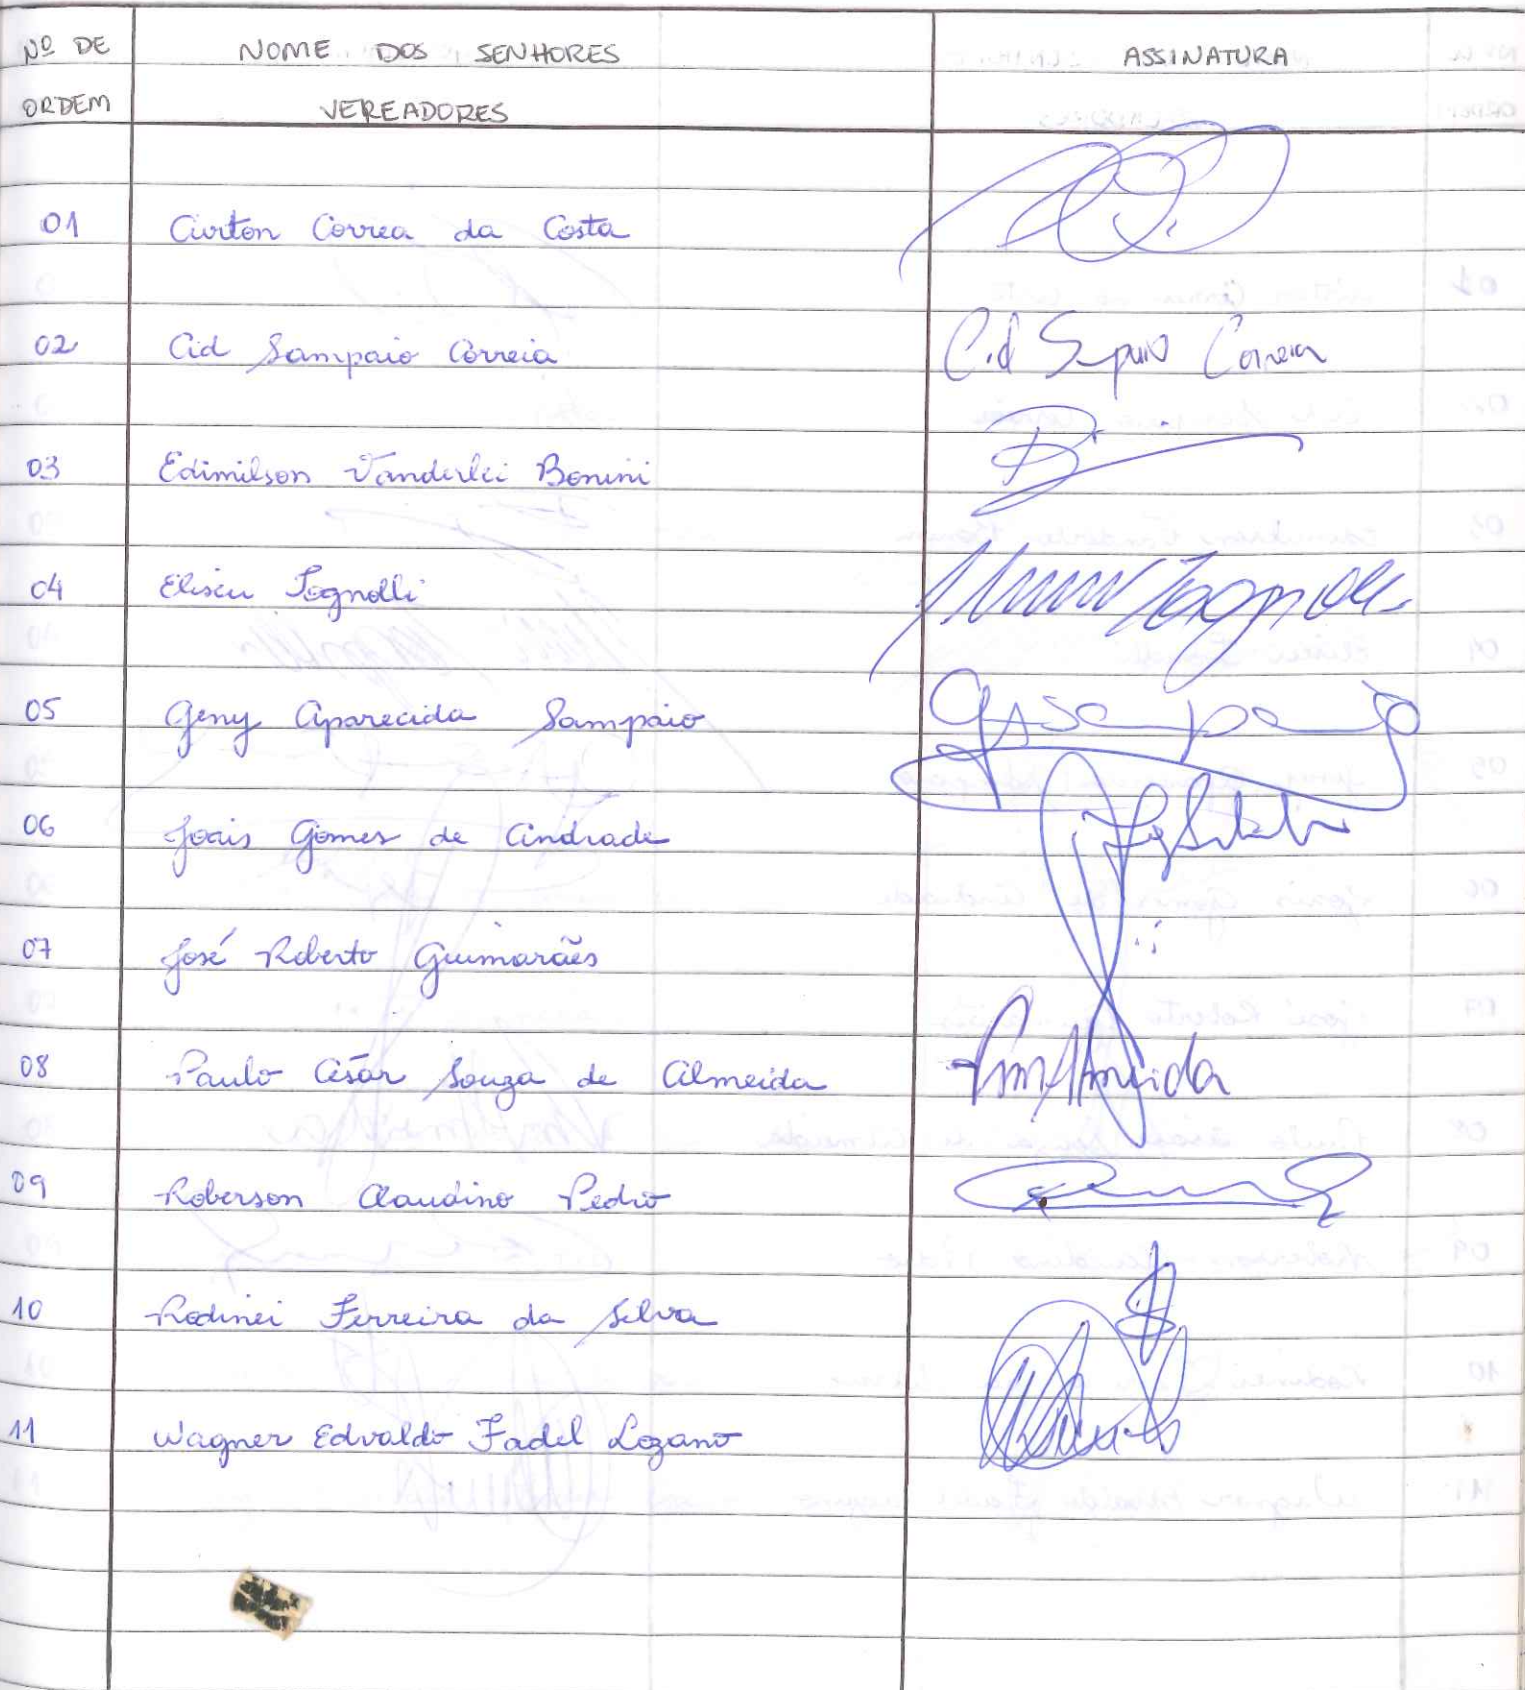 Nº DE NOME DOS SENHORES ASSINATURA
ORDEM VEREADORES
01 Airton Correa da Costa
02 Cid Sampaio Correia Cid Sampaio Correia
03 Edimilson Vanderlei Bonini
04 Eliseu Tognolli Tognolli
05 Geny Aparecida Sampaio GASampaio
06 Joais Gomes de Andrade
07 José Roberto Guimarães
08 Paulo César Souza de Almeida Almeida
09 Roberson Claudino Pedro
10 Rodinei Ferreira da Silva
11 Wagner Edvaldo Fadel Lozano